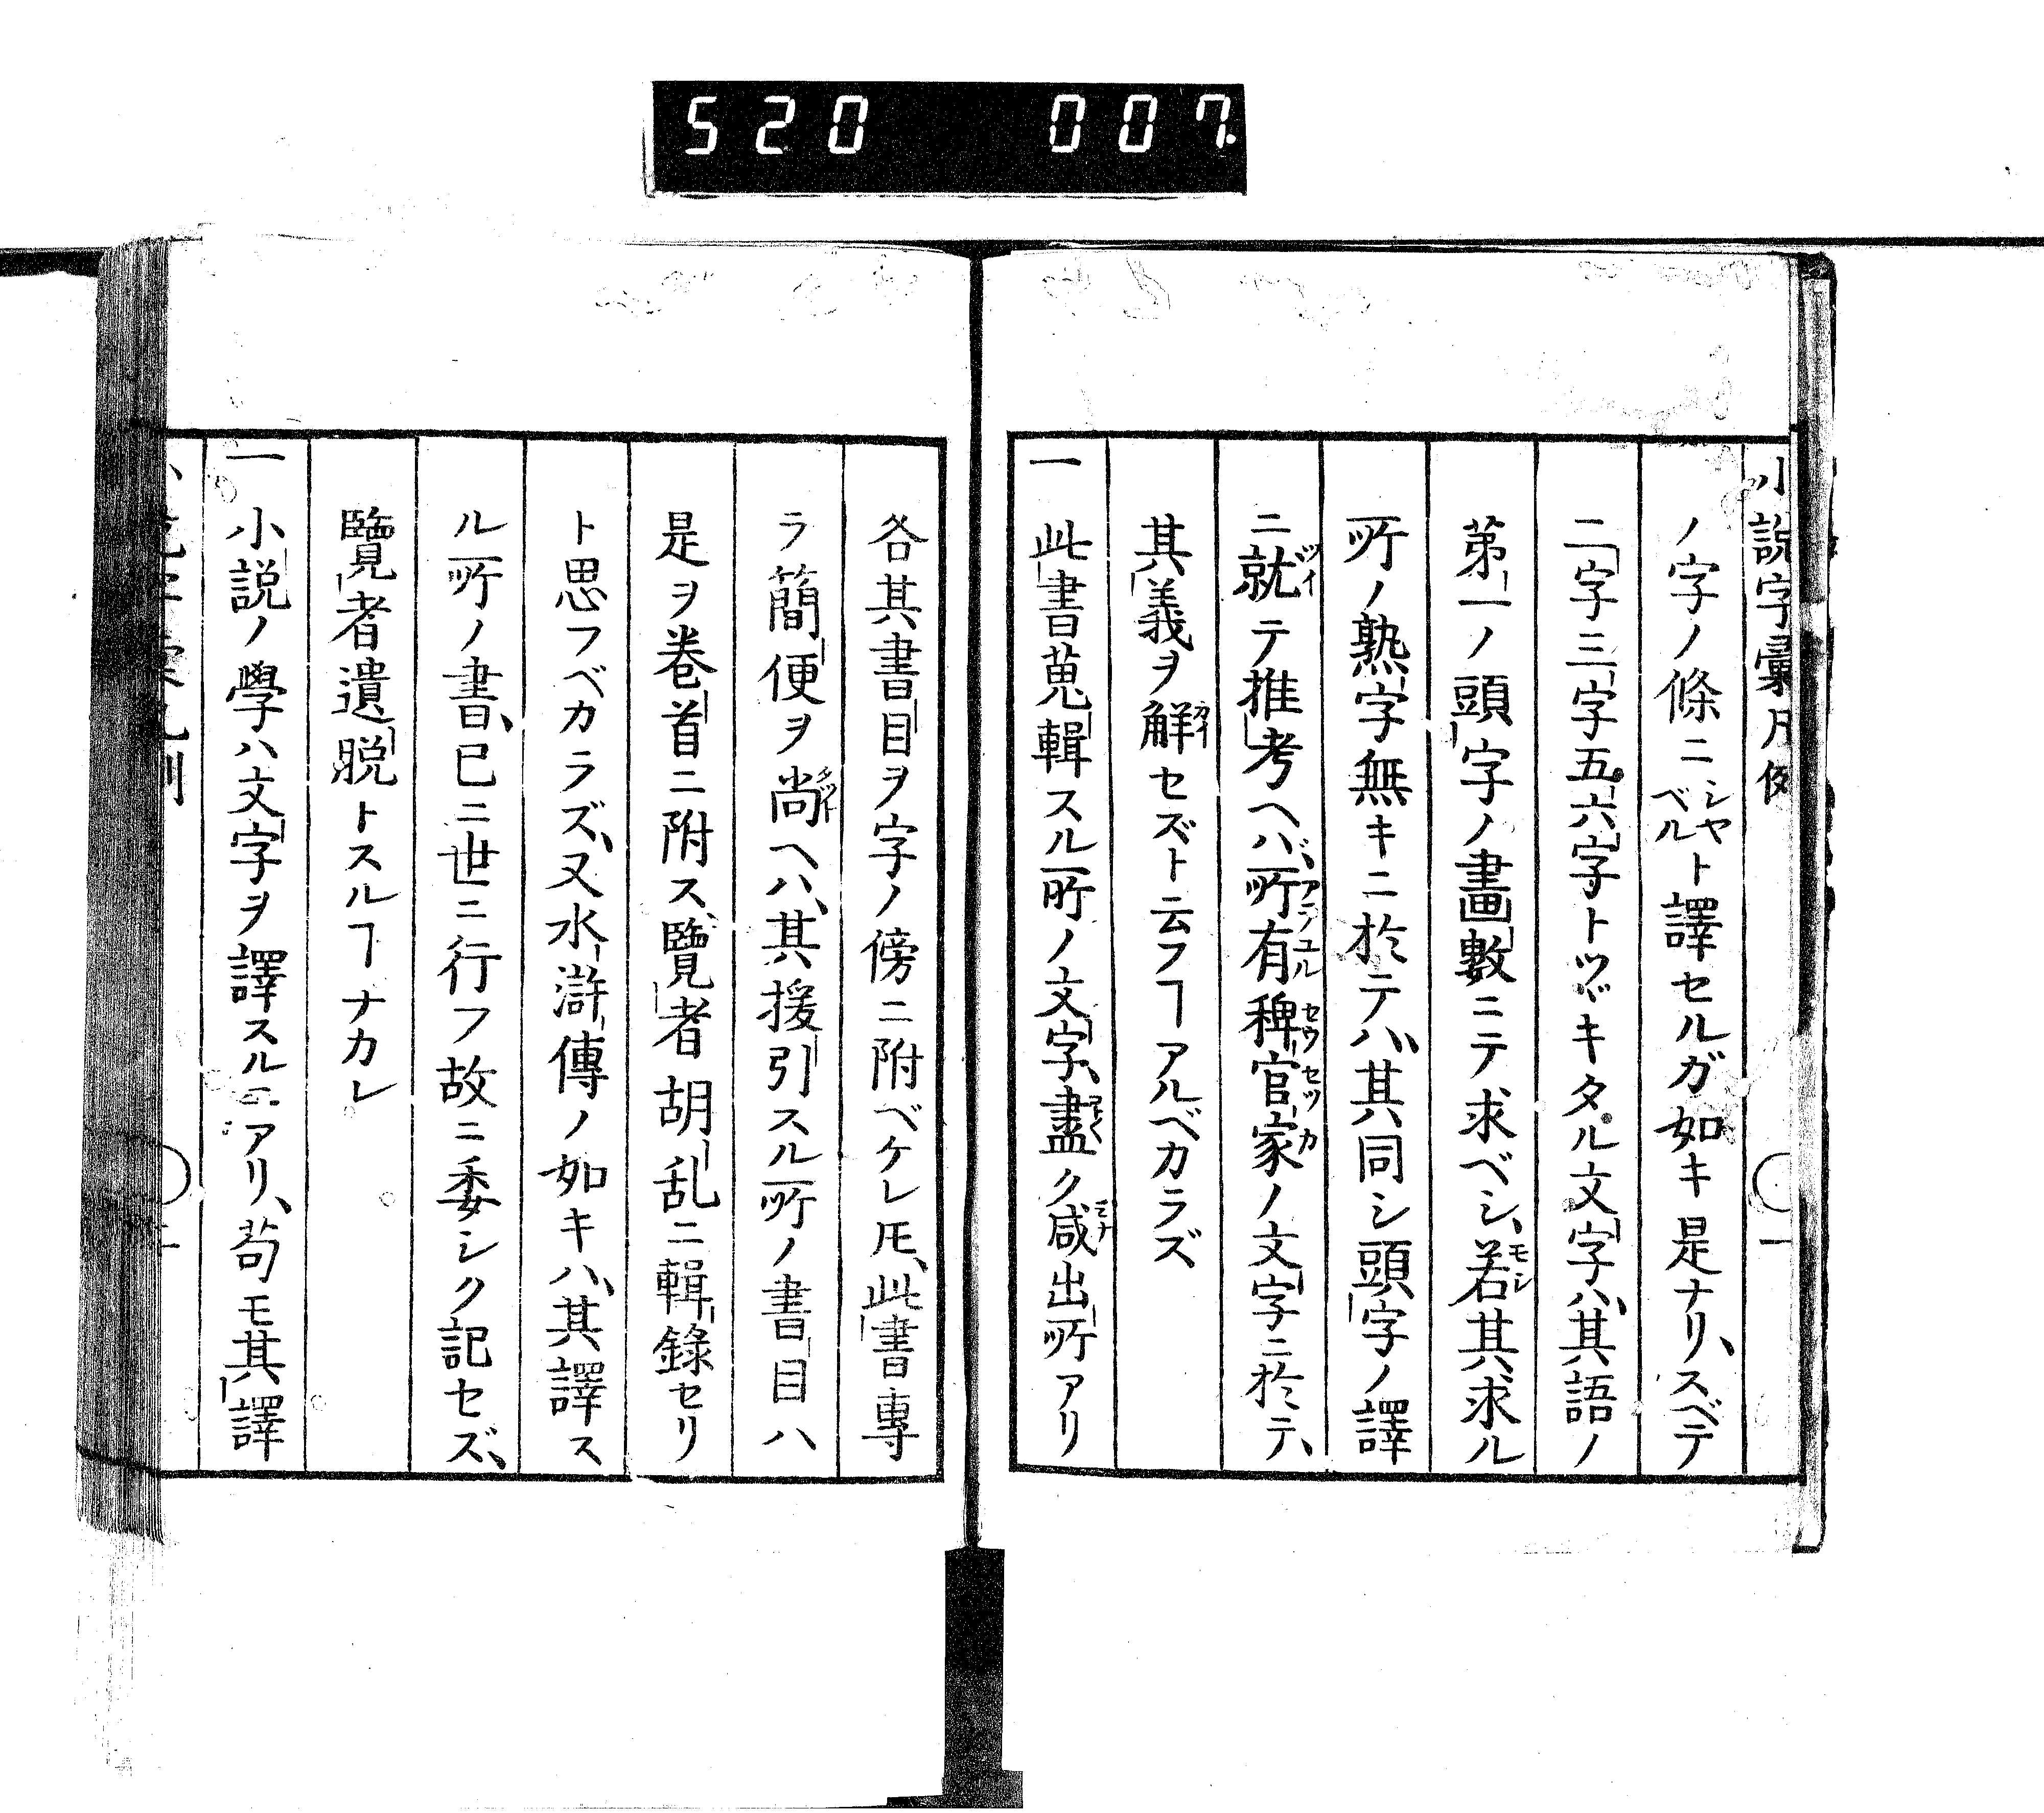 520 007
小説字彙凡例 一
ノ字ノ條ニシヤベルト譯セルガ如キ是ナリ、スベテ
二字三字五六字トツヾキタル文字ハ、其語ノ
第一ノ頭字ノ畫數ニテ求ベシ、若其求ル
所ノ熟字無キニ於テハ、其同シ頭字ノ譯
ニ就テ推考ヘバ、所有稗官家ノ文字ニ於テ、
其義ヲ解セズト云フヿアルベカラズ
一 此書蒐輯スル所ノ文字、盡ク咸出所アリ
各其書目ヲ字ノ傍ニ附ベケレ𪜈、此書專
ラ簡便ヲ尚ヘハ、其援引スル所ノ書目ハ
是ヲ巻首ニ附ス、覽者胡乱ニ輯錄セリ
ト思フベカラズ、又水滸傳ノ如キハ、其譯ス
ル所ノ書、已ニ世ニ行フ故ニ委シク記セズ、
覽者遺脱トスルヿナカレ
一 小説ノ學ハ文字ヲ譯スルニアリ、苟モ其譯